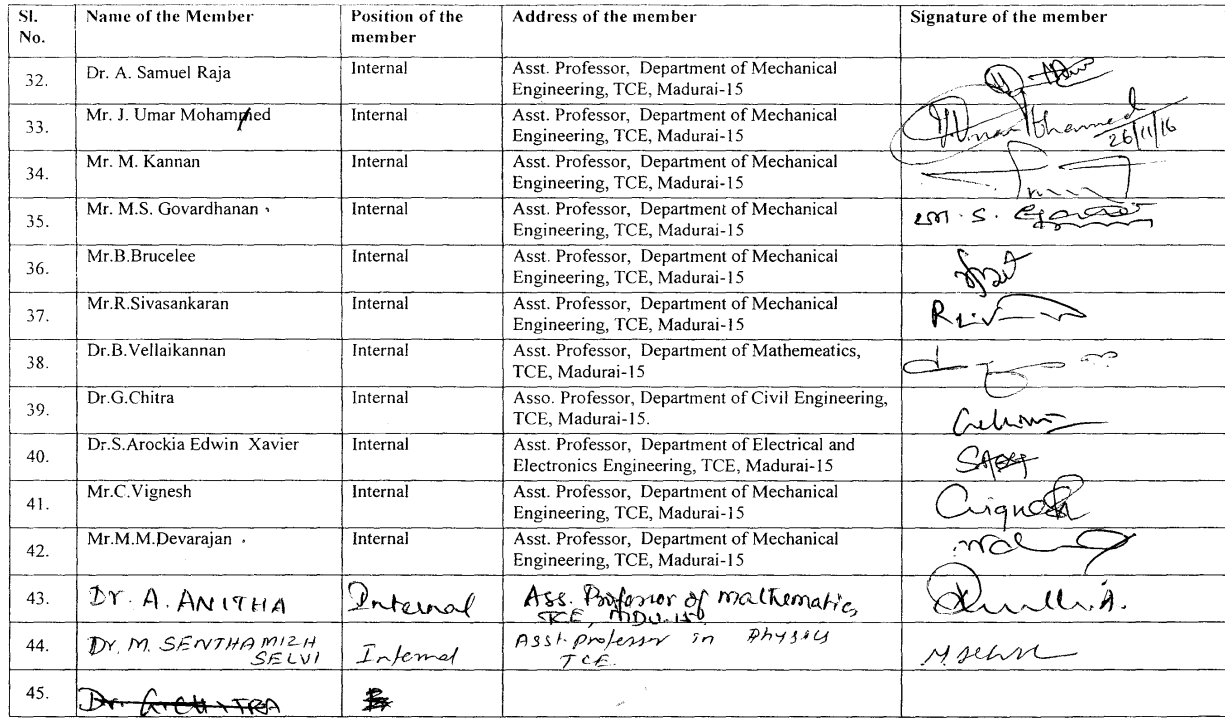 Sl. No. Name of the Member Position of the member Address of the member Signature of the member
32. Dr. A. Samuel Raja Internal Asst. Professor, Department of Mechanical
Engineering, TCE, Madurai-15
33. Mr. J. Umar Mohammed Internal Asst. Professor, Department of Mechanical
Engineering, TCE, Madurai-15
26/11/16
34. Mr. M. Kannan Internal Asst. Professor, Department of Mechanical
Engineering, TCE, Madurai-15
35. Mr. M.S. Govardhanan Internal Asst. Professor, Department of Mechanical
Engineering, TCE, Madurai-15
M. S.
36. Mr.B.Brucelee Internal Asst. Professor, Department of Mechanical
Engineering, TCE, Madurai-15
37. Mr.R.Sivasankaran Internal Asst. Professor, Department of Mechanical
Engineering, TCE, Madurai-15
38. Dr.B.Vellaikannan Internal Asst. Professor, Department of Mathemeatics,
TCE, Madurai-15
39. Dr.G.Chitra Internal Asso. Professor, Department of Civil Engineering,
TCE, Madurai-15.
40. Dr.S.Arockia Edwin Xavier Internal Asst. Professor, Department of Electrical and
Electronics Engineering, TCE, Madurai-15
41. Mr.C.Vignesh Internal Asst. Professor, Department of Mechanical
Engineering, TCE, Madurai-15
42. Mr.M.M.Devarajan Internal Asst. Professor, Department of Mechanical
Engineering, TCE, Madurai-15
43. Dr. A. ANITHA Internal Ass. Professor of mathematics,
TCE, MDU-15.
44. Dr. M. SENTHAMIZH
SELVI Internal Asst. professor in Physics
TCE.
45.